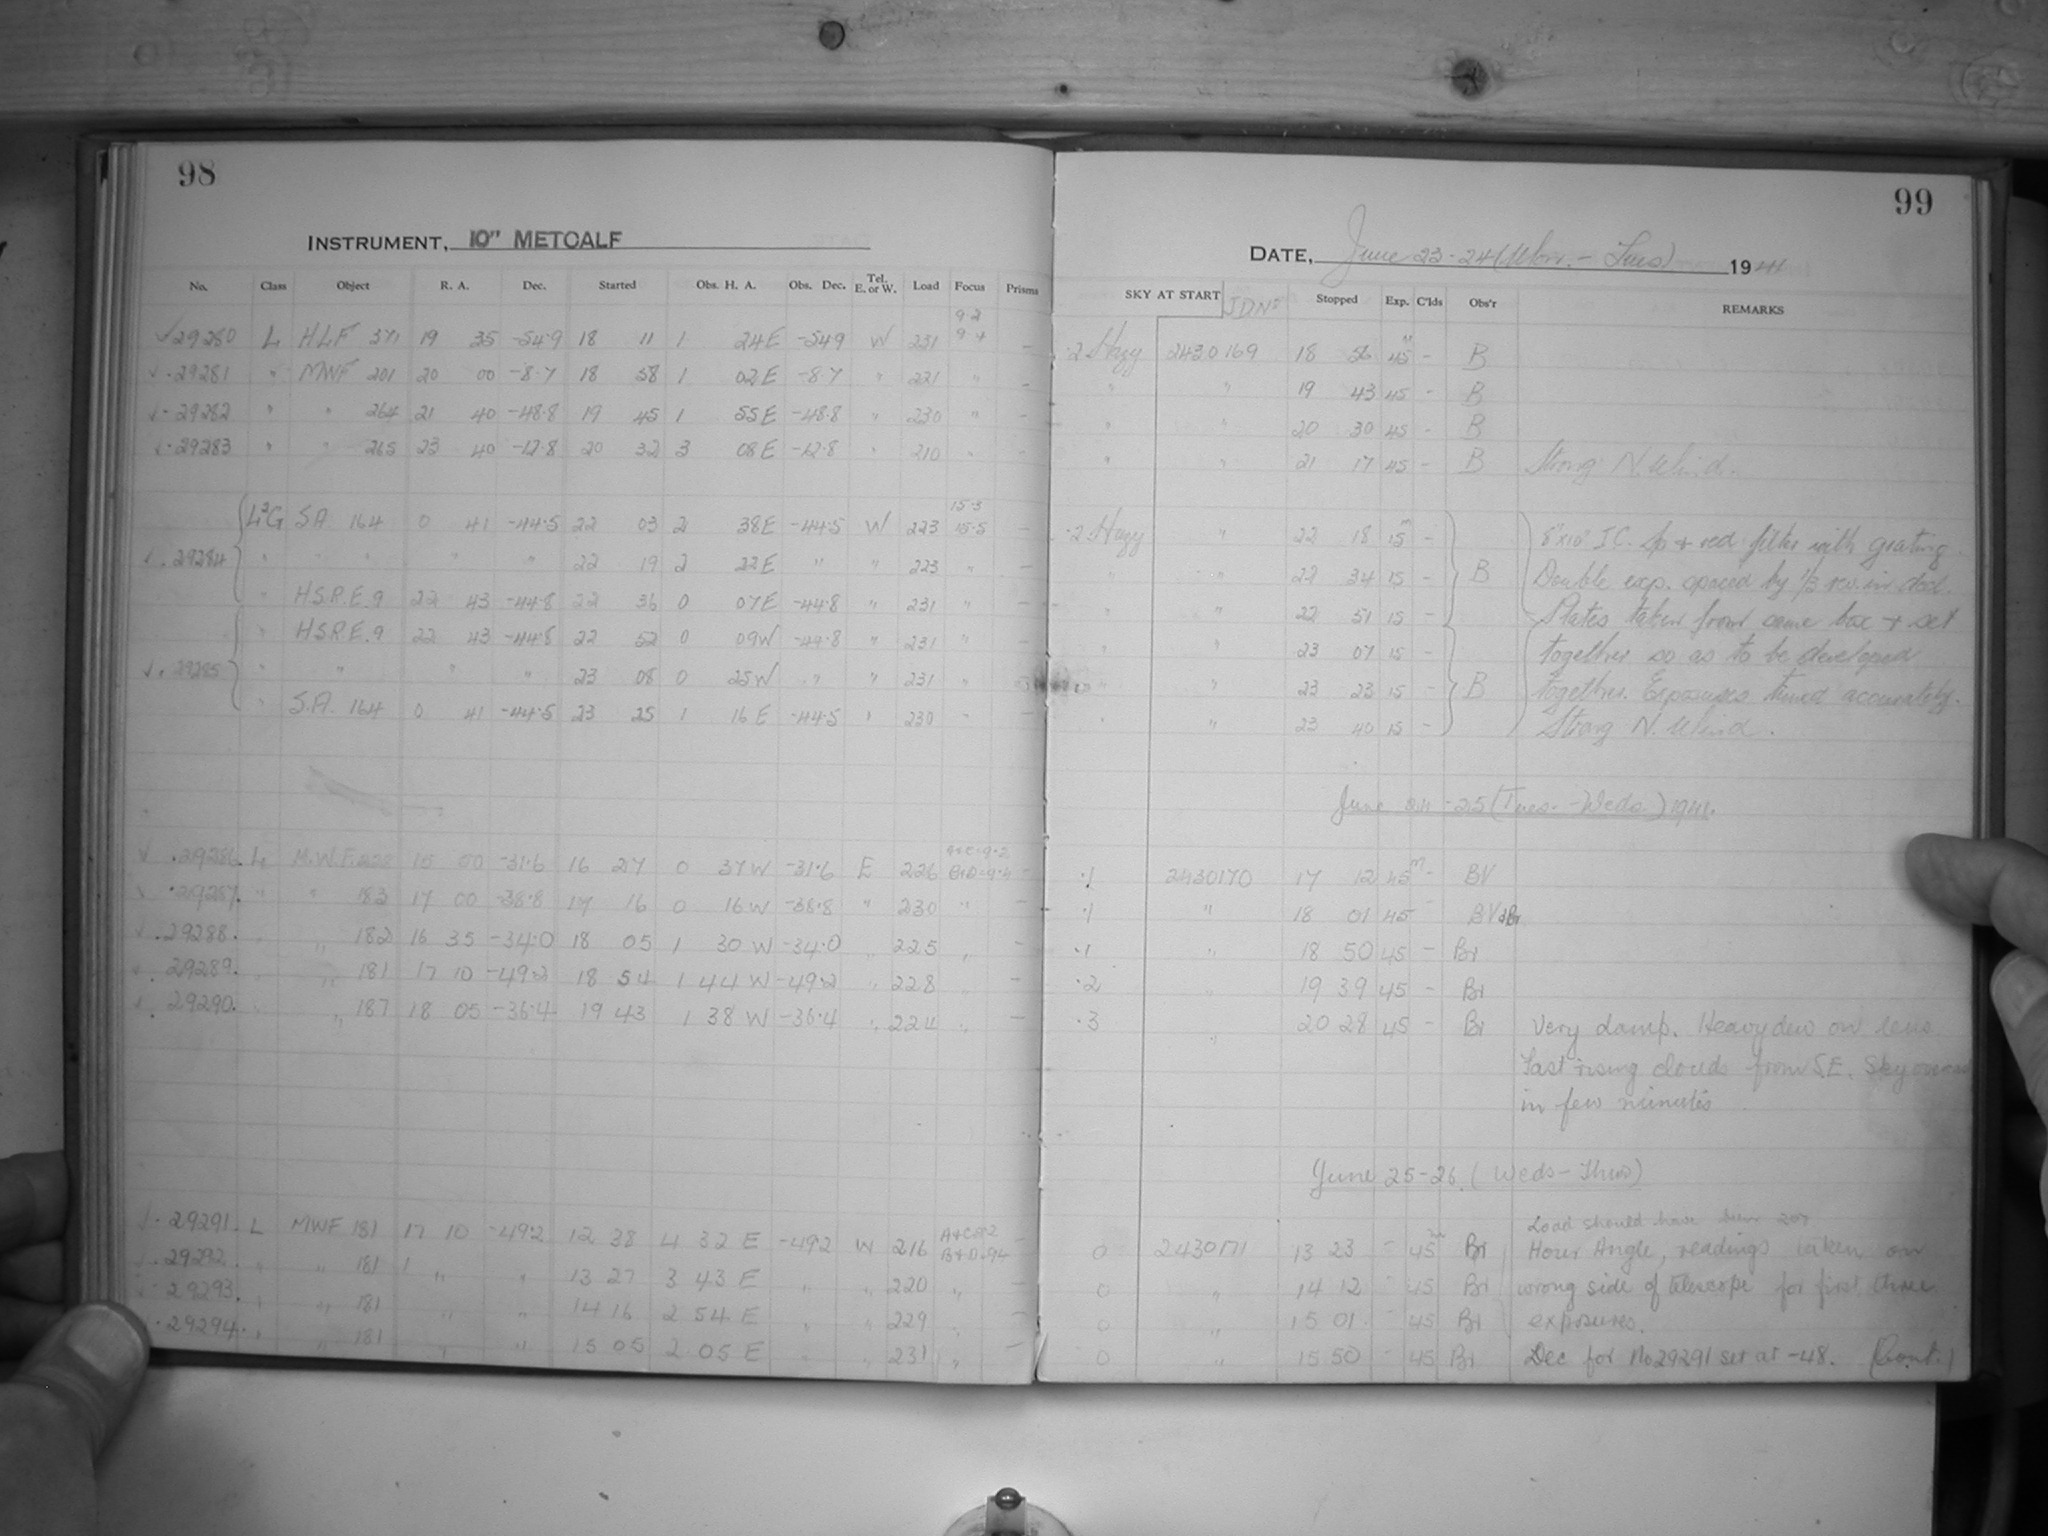 98
INSTRUMENT, 10" METCALF
No. Class Object R. A. Dec. Started Obs. H. A. Obs. Dec. Tel. E. or W. Load Focus Prisms
9 2
29280 L HLF 371 19 35 -54.9 18 11 1 24E -54.9 W 231 9 4 -
29281 " MWF 201 20 00 -8.7 18 58 1 02E -8.7 " 221 " -
29282 " " 264 21 40 -48.8 19 45 1 55E -48.8 " 230 " -
29283 " " 265 23 40 -12.8 20 32 3 08E -12.8 " 210 " -
15.3
SA 164 0 41 -44.5 22 03 2 38E -44.5 W 223 15.5 -
29284 " " " " " 22 19 2 22E " " 223 " -
" H.S.P.E.9 22 43 -44.8 22 36 0 07E -44.8 " 231 " -
" H.S.P.E.9 22 43 -44.8 22 52 0 09W -44.8 " 231 "
29285 " " " " 23 08 0 25W " " 231 "
" S.A. 164 0 41 -44.5 23 25 1 16E -44.5 " 230 -
29286 L M.W.F. 15 00 -31.6 16 27 0 37W -31.6 E 226 B+D=9.4 -
29287 " " 183 17 00 -38.8 17 16 0 16W -38.8 " 230 " -
29288. " " 182 16 35 -34.0 18 05 1 30 W -34.0 " 225 " -
29289. " " 181 17 10 -49.2 18 54 1 44 W -49.2 " 228 " -
29290. " " 187 18 05 -36.4 19 43 1 38 W -36.4 " 224 " -
A+C 9.2
29291. L MWF 181 17 10 -49.2 12 38 4 32 E -49.2 W 216 B+D=9.4
29292. " " 181 " " 13 27 3 43 E " " 220 " -
29293. " " 181 " " 14 16 2 54 E " " 229 " -
29294. " " 181 " " 15 05 2 05 E " " 231 " -
99
DATE, June 23-24 (Mon. - Tues) 1941
SKY AT START JDNo Stopped Exp. C'lds Obs'r REMARKS
.2 Hazy 2430169 18 56 45m - B
" " 19 43 45 - B
" " 20 30 45 - B
" " 21 17 45 - B Strong N. Wind.
.2 Hazy " 22 18 15m - 8"x10" I.C. Sp + red filter with grating.
" " 22 34 15 - B Double exp. spaced by 1/3 rev. in decl.
" " 22 51 15 - Plates taken from same box + set
" " 23 07 15 - together so as to be developed
" " 23 23 15 - B together. Exposures timed accurately.
" " 23 40 15 - Strong N. Wind.
June 24-25 (Tues. - Weds.) 1941.
.1 2430170 17 12 45m - BV
.1 " 18 01 45 BV & Br
.1 " 18 50 45 - Br
.2 " 19 39 45 - Br
.3 " 20 28 45 - Br Very damp. Heavy dew on lens.
Fast rising clouds from S.E. Sky
in few minutes
June 25-26. (Weds - Thurs)
Load should have been 207
0 2430171 13 23 - 45m Br Hour Angle, readings taken on
0 " 14 12 - 45 Br wrong side of telescope for first three
0 " 15 01 - 45 Br exposures.
0 " 15 50 - 45 Br Dec for No 29291 set at -48. (Cont.)